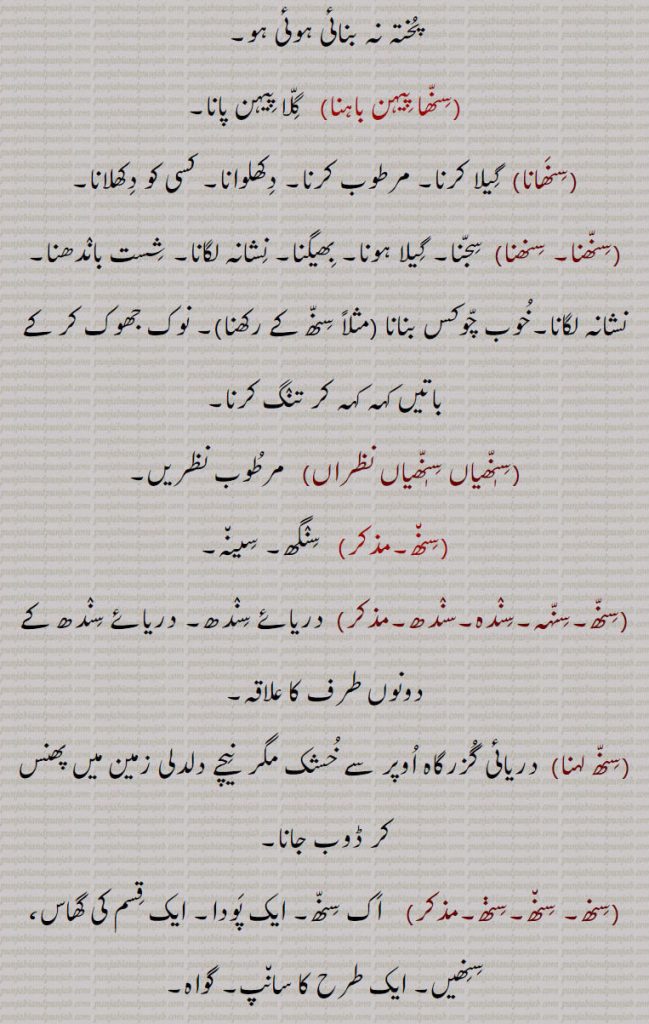 پُختہ نہ بنائی ہوئی ہو۔
(سِنّھا پِیہن باہنا) گِلّا پِیہن پانا۔
(سِنّھانا) گِیلا کرنا۔ مرطوب کرنا۔ دِکھلوانا۔ کسی کو دِکھلانا۔
(سِنّھنا۔ سِنھنا) سِجّنا۔ گِیلا ہونا۔ بِھیگنا۔ نِشانہ لگانا۔ شِست باندھنا۔
نشانہ لگانا۔خُوب چّوکس بنانا (مثلاً سِنّھ کے رکھنا)۔ نوک جھوک کر کے
باتیں کہہ کہہ کر تنگ کرنا۔
(سِنّھیاں سِنّھیاں نظراں) مرطُوب نظریں۔
(سِنّھ۔مذکر) سِنگھ۔ سِینہّ۔
(سِنّھ۔سِنّہہ۔سِندہ۔سندھ۔مذکر) دریائے سِندھ۔ دریائے سِندھ کے
دونوں طرف کا علاقہ۔
(سِنّھ لہنا) دریائی گُزرگاہ اُوپر سے خُشک مگر نیچے دلدلی زمین میں پھنس
کر ڈوب جانا۔
(سِنھ۔ سِنّھ۔سِنھ۔مذکر) اَک سِنّھ۔ ایک پَودا۔ ایک قِسم کی گھاس،
سِنھیں۔ ایک طرح کا سانپ۔ گواہ۔